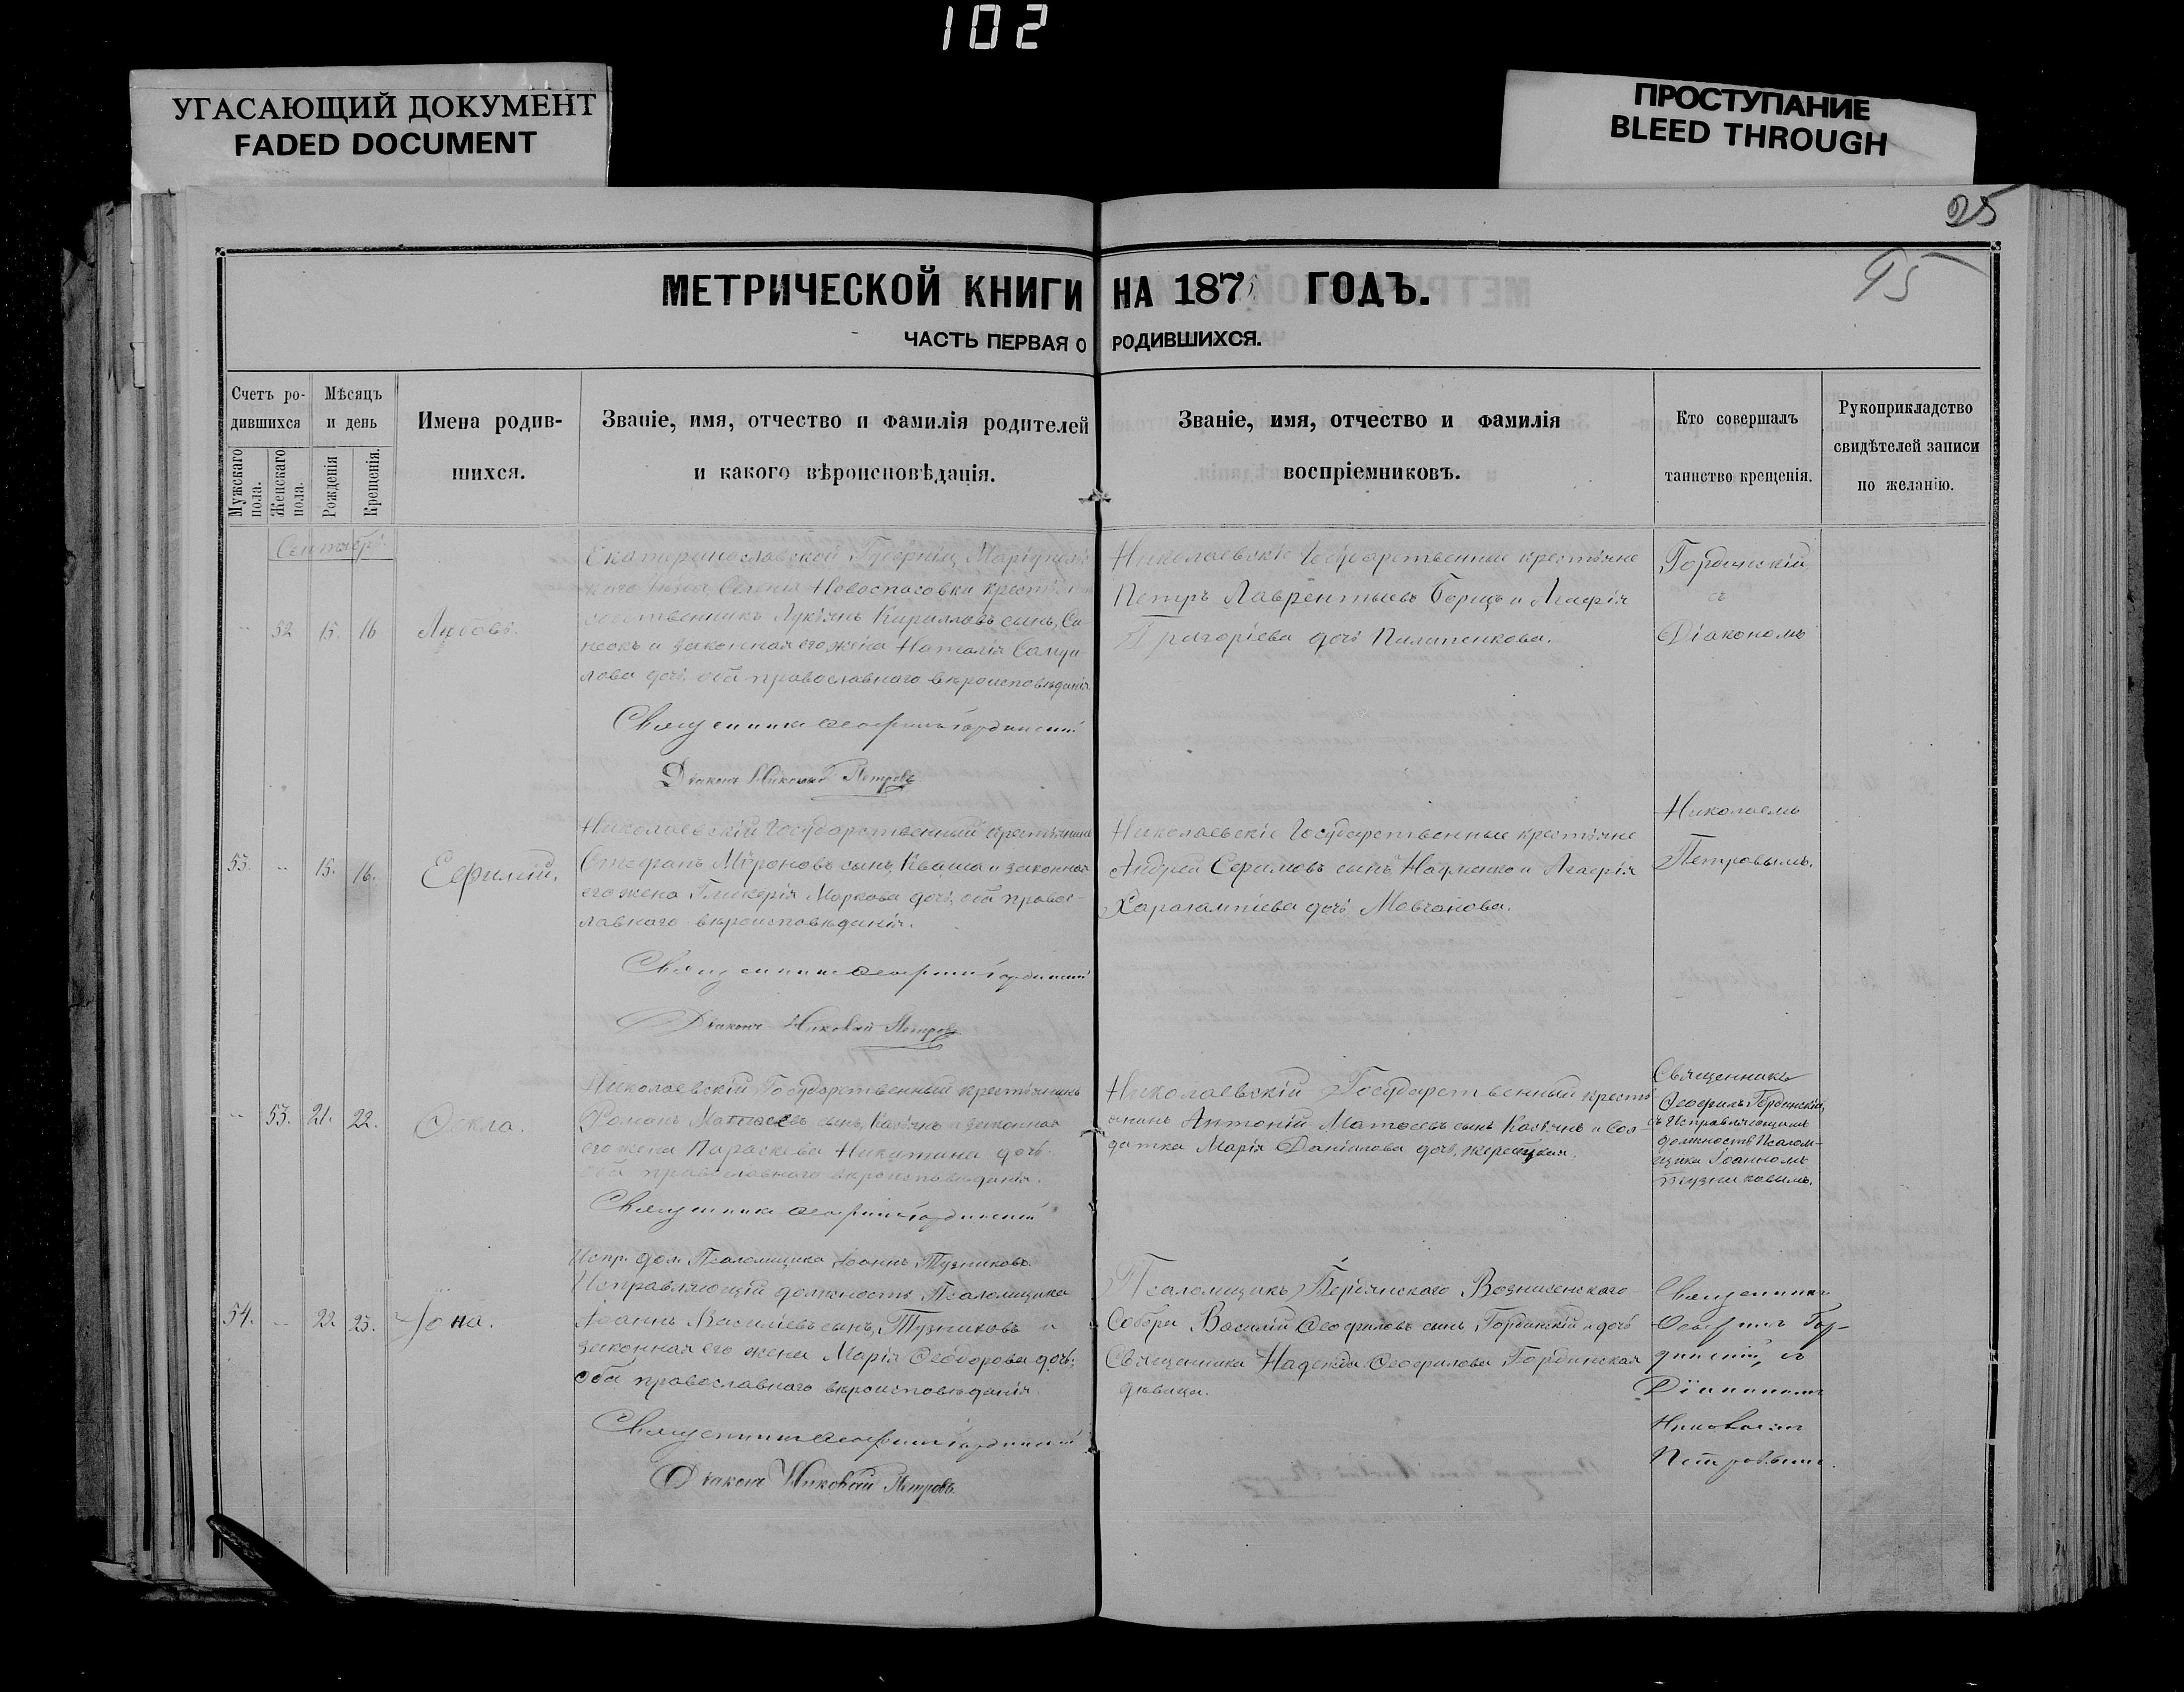 102
УГАСАЮЩИЙ ДОКУМЕНТ
FADED DOCUMENT
ПРОСТУПАНИЕ
BLEED THROUGH
25
95
МЕТРИЧЕСКОЙ КНИГИ НА 187 ГОДЪ.
ЧАСТЬ ПЕРВАЯ О РОДИВШИХСЯ.
Счетъ ро-
дившихся
Мужскаго пола.
Женскаго пола.
Мѣсяцъ
и день
Рожденія
Крещенія.
Имена родив-
шихся.
Званіе, имя, отчество и фамилія родителей
и какого вѣроисповѣданія.
Званіе, имя, отчество и фамилія
воспріемниковъ.
Кто совершалъ
таинство крещенія.
Рукоприкладство
свидѣтелей записи
по желанію.
Сентябрь
52 15. 16 Любовь.
Екатеринославской Губерніи, Маріуполь
Селенія Новоспасовки крестья
собственникъ Лукьянъ Кирилловъ сынъ, Са
и законная его жена Наталія Самуи
лова дочь, оба православнаго вѣроисповѣданія.
Священникъ Ѳеофилъ Гординскій
Діаконъ Николай Петровъ
Николаевскіе Государственные крестьяне
Петръ Лаврентьевъ Борщъ и Агафія
Григоріева дочь Пилипенкова.
Гординскій
съ
Діакономъ
Николаемъ
Петровымъ.
53. 15. 16. Евфимій.
Николаевскій Государственный крестьянинъ
Стефанъ Мѵроновъ сынъ, Кваша и законная
его жена Гликерія Маркова дочь, оба правос-
лавнаго вѣроисповѣданія.
Священникъ Ѳеофилъ Гординскій
Діаконъ Николай Петровъ
Николаевскіе Государственные крестьяне
Андрей Ефимовъ сынъ, Науменко и Агафія
Харалампіева дочь Мовчанова.
53. 21. 22. Ѳекла.
Николаевскій Государственный крестьянинъ
Романъ Матѳеевъ сынъ, Касьянъ и законная
его жена Параскева Никитина дочь.
оба православнаго вѣроисповѣданія.
Священникъ Ѳеофилъ Гординскій
Испр. дол. Псаломщика Іоаннъ Тузниковъ.
Николаевскій Государственный кресть-
янинъ Антоній Матѳеевъ сынъ Касьянъ и Сол-
датка Марія Даніилова дочь,
Священникъ
Ѳеофилъ Гординскій,
съ Исправляющимъ
должность Псалом-
щика Іоанномъ
Тузниковымъ.
54. 22. 23. Іона.
Исправляющій должность Псаломщика
Іоаннъ Василіевъ сынъ, Тузниковъ и
законная его жена Марія Ѳеодорова дочь,
оба православнаго вѣроисповѣданія.
Священникъ Ѳеофилъ Гординскій
Діаконъ Николай Петровъ.
Псаломщикъ Бердянскаго Вознесенскаго
Собора Василій Ѳеофиловъ сынъ, Гординскій и дочь
Священника Надежда Ѳеофилова Гординская
дѣвица.
Священникъ
Ѳеофилъ Гор-
динскій, съ
Діакономъ
Николаемъ
Петровымъ.